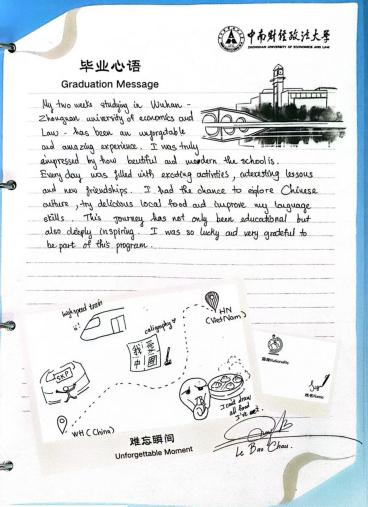 中南财经政法大学
ZHONGNAN UNIVERSITY OF ECONOMICS AND LAW
毕业心语
Graduation Message
My two weeks studying in Wuhan -
Zhongnan university of economics and
Law - has been an unforgetable
and amazing experience. I was truly
empressed by how beutiful and modern the school is.
Every day was filled with exciting activities, interesting lessons
and new friendships. I had the chance to explore Chinese
culture, try delicious local food and improve my language
skills. This journey has not only been educational but
also deeply inspiring. I was so lucky and very grateful to
be part of this program.
high speed train
HN
(Viet Nam)
caligraphy
我爱
中国
SKP
国籍Nationality
姓名Name
I can't draw
all food
I've eat.
WH (China)
难忘瞬间
Unforgettable Moment
Le Bao Chau.